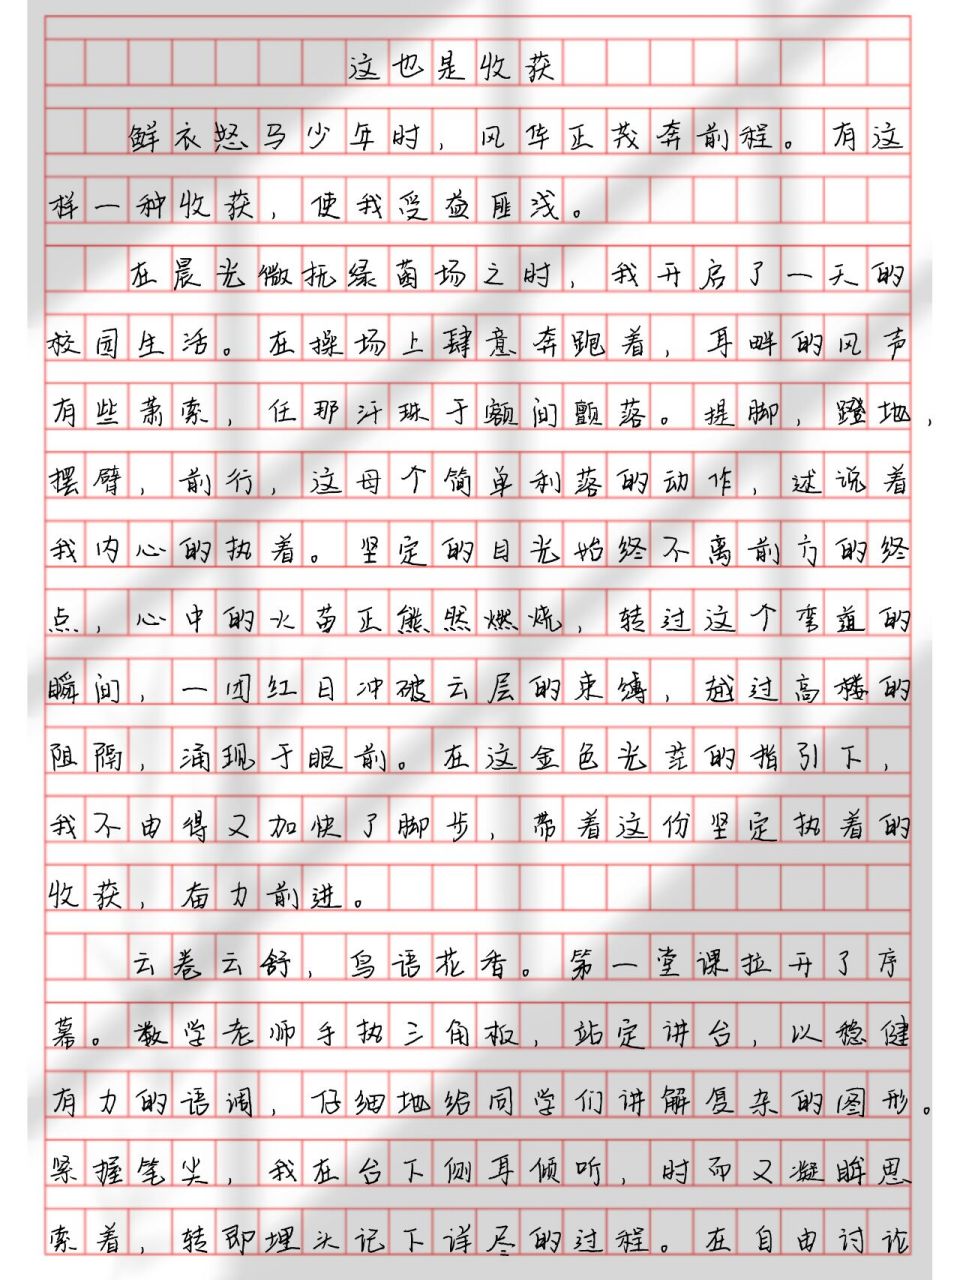 这也是收获
鲜衣怒马少年时，风华正茂奔前程。有这
样一种收获，使我受益匪浅。
在晨光微抚绿茵场之时，我开启了一天的
校园生活。在操场上肆意奔跑着，耳畔的风声
有些萧索，任那汗珠于额间颤落。提脚，蹬地，
摆臂，前行，这母个简单利落的动作，述说着
我内心的执着。坚定的目光始终不离前方的终
点，心中的火苗正熊然燃烧，转过这个弯道的
瞬间，一团红日冲破云层的束缚，越过高楼的
阻隔，涌现于眼前。在这金色光芒的指引下，
我不由得又加快了脚步，带着这份坚定执着的
收获，奋力前进。
云卷云舒，鸟语花香。第一堂课拉开了序
幕。数学老师手执三角板，站定讲台，以稳健
有力的语调，仔细地给同学们讲解复杂的图形。
紧握笔尖，我在台下侧耳倾听，时而又凝眸思
索着，转即埋头记下详尽的过程。在自由讨论